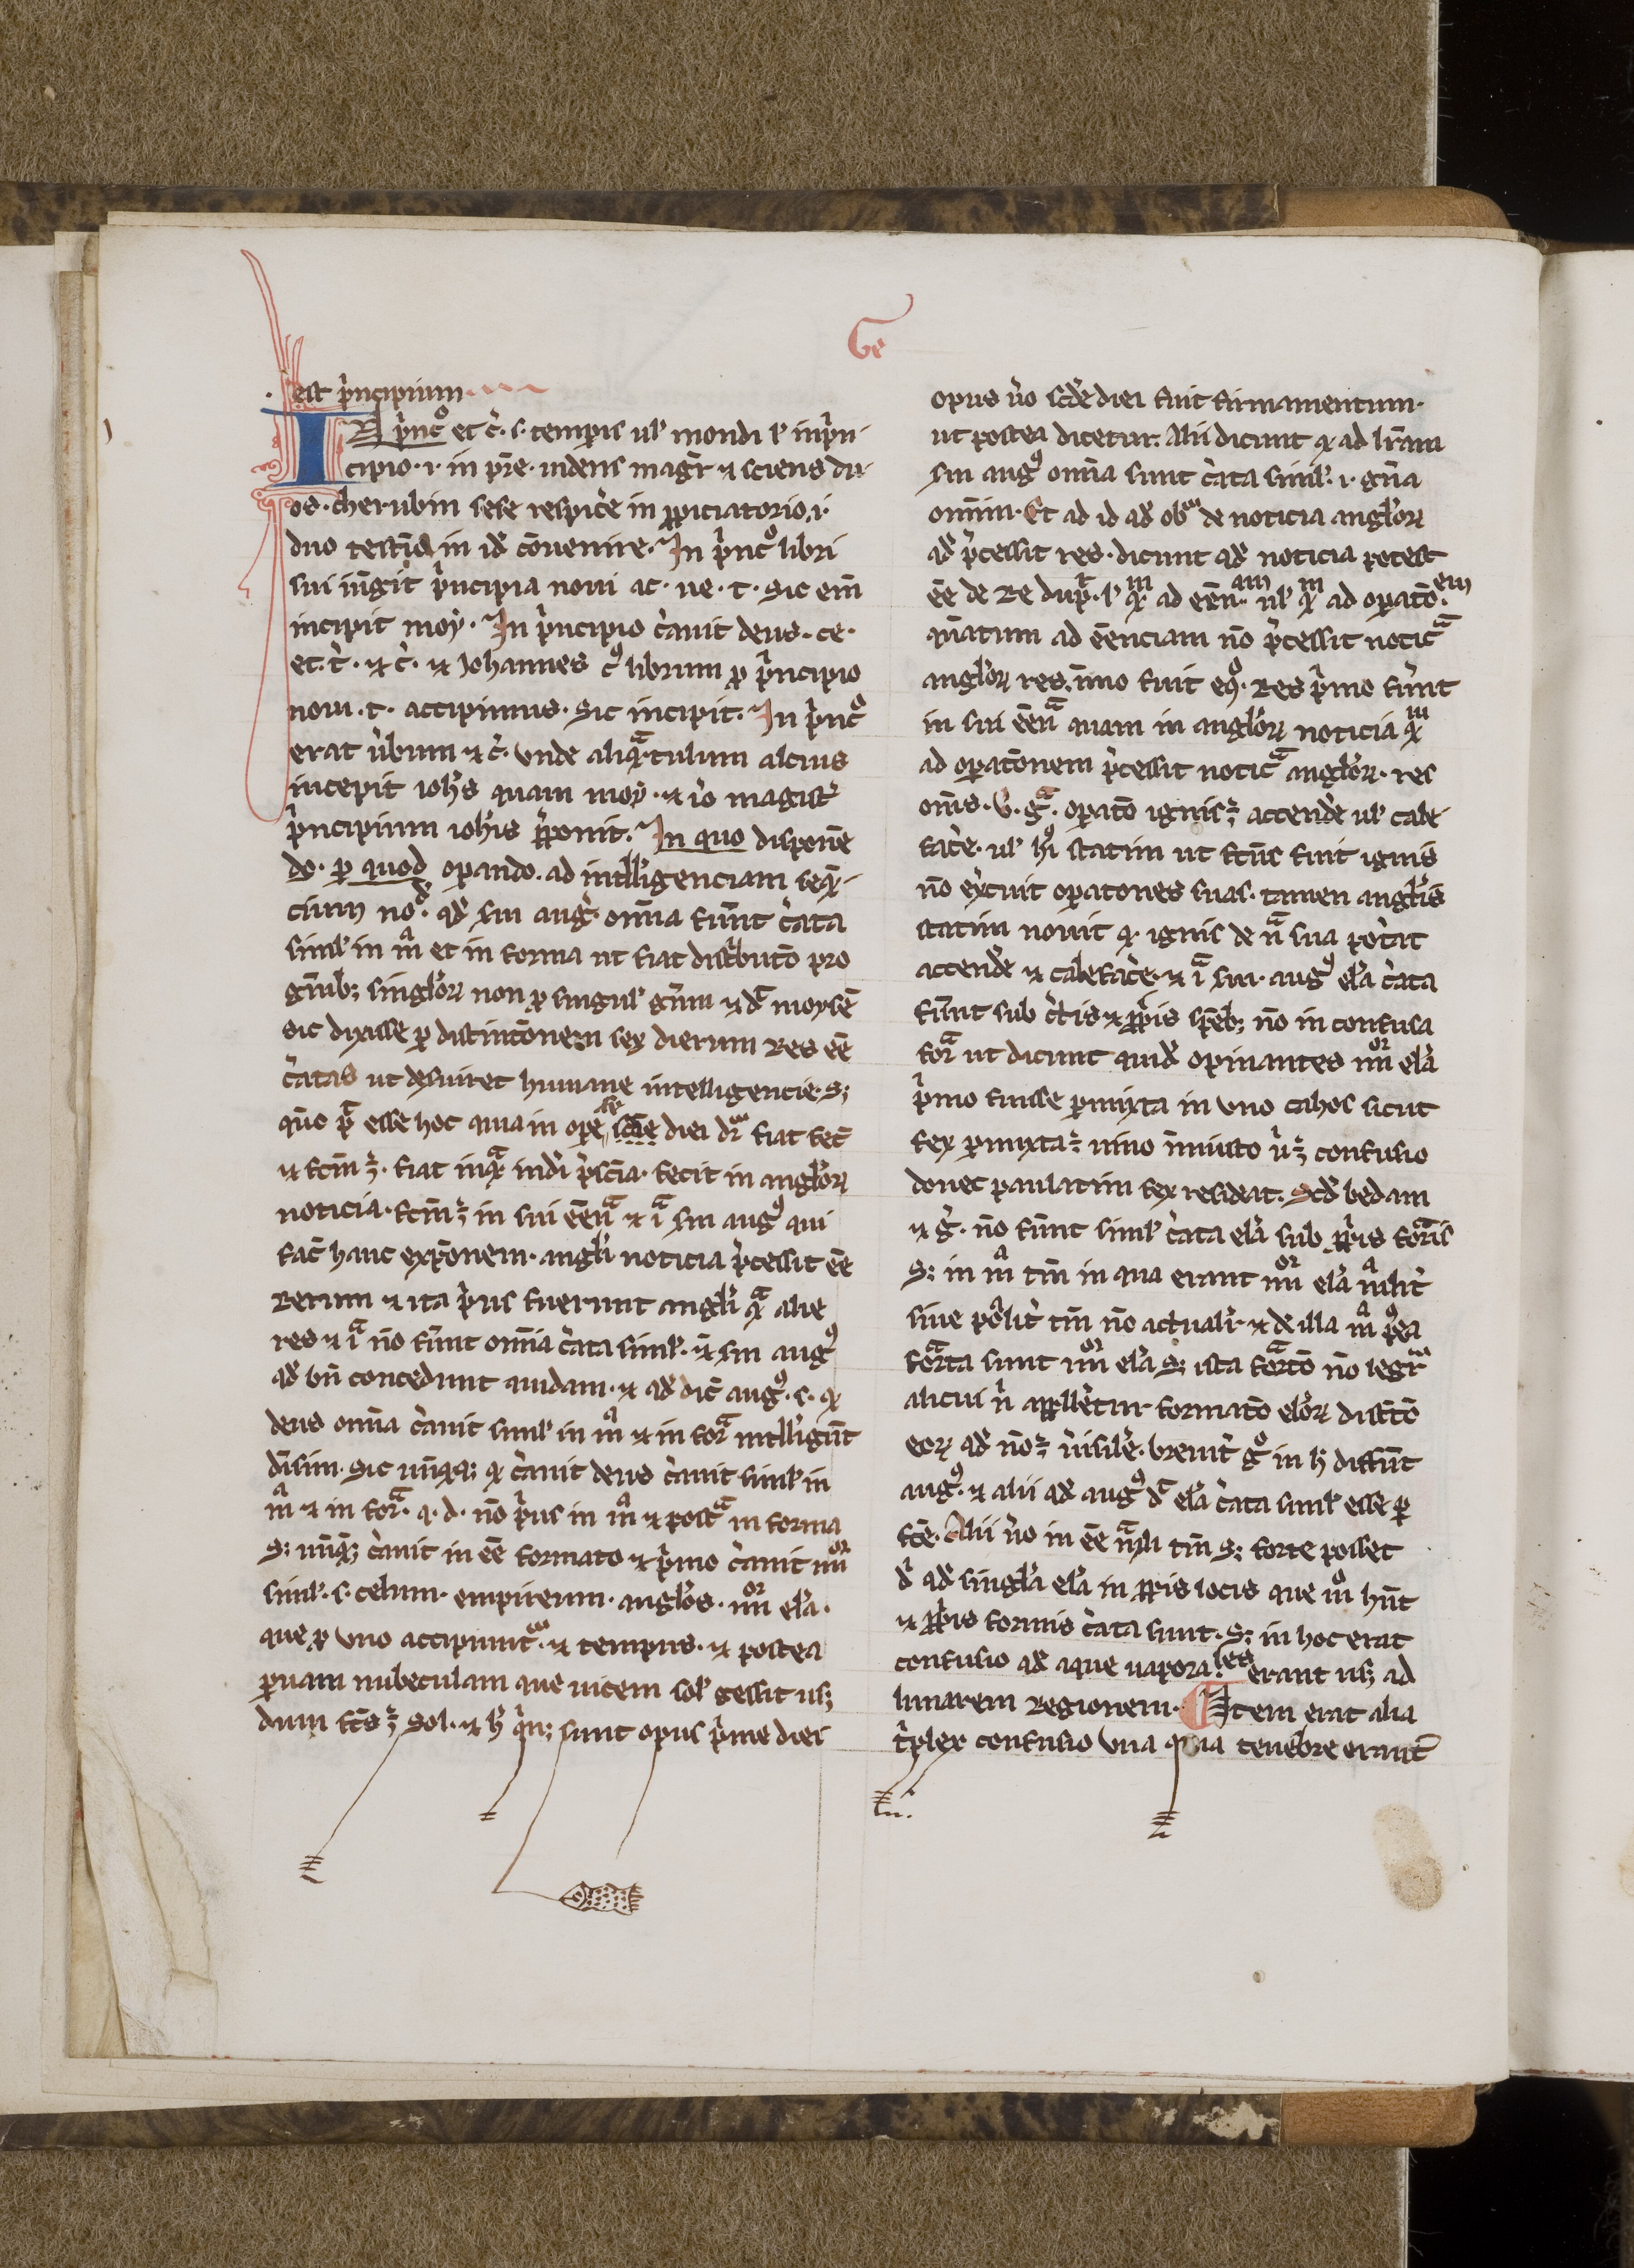 Ge
est p̾ncipium
IN p̾ncͦ et c̾. s. tempis ul̕ mondi l̕ inp̾n
cipio. i. in pr̄e. uidens magr̄ ⁊ sciens du
os. cherubin sese respic̾e in ꝓpiciatorio. i.
duo testīa in id̾ cōuenire. In p̾ncͦ libri
sui iūgit p̾ncipia noui ac. ue. t. Sic em̄
incipit moẏ. In p̾ncipio c̾auit deus. ce.
et. t̾. ⁊ c̾. ⁊ Iohannes cꝰ librum ꝓ p̾ncipio
noui. t. accipimus. Sic incipit. In p̾ncͦ
erat u̾bum ⁊ c̾. vnde aliqᷓtulum alcius
incepit ioh̄s quam moẏ. ⁊ iō magist̾
p̾ncipium ioh̄is p̾ponit. In quo disponē
do. ꝑ quod oꝑando. ad intll̾igenciam seq̄
cium no. qd̾ sm̄ augꝰ. om̄ia fuer̄t c̾ata
siml̕ in mᷓ et in forma ut fiat distbutō pro
gn̄ibꝫ singl̾oꝝ non ꝓ singul̕ gn̄um ⁊ dᷓ moysē
sic dixisse ꝑ distinctōnem sex dierum Res ēe
c̾atas ut des̾uiret humane intelligencie. Sꝫ
qn̄o pᷓ esse hoc quia in oꝑe scd̾e diei dr̄ fiat fec̄
⁊ fcm̄ ꝫ. fiat inqᷓ ind̾i p̾scīa. fecit in angl̾oꝝ
noticia. fcm̄ ꝫ in sui ēenᷓ ⁊ iᷓ sm̄ augꝰ qui
fac̄ hanc expōnem. angl̾i noticia p̾cessit ēe
Rerum ⁊ ita p̾us fuerunt angl̾i qᷓ alie
res ⁊ iᷓ nō fuer̄t om̄ia c̾ata siml̕. ⁊ sm̄ augꝰ
qd̾ bn̄ concedunt quidam. ⁊ qd̾ dic̄ augꝰ. s. ꝙ
deus om̄ia c̾auit siml̕ in mᷓ ⁊ in forᷓ intll̾igūt
diu̾sim. Sic un̄qqꝫ ꝙ c̾auit deus c̾auit siml̕ in
mᷓ ⁊ in forᷓ. q. d. nō p̾us in mᷓ ⁊ postᷓ in forma
Sꝫ un̄qꝫ c̾auit in ēe formato ⁊ p̾mo c̾auit iiiior
siml̕. s. celum. empireum. angl̾os. iiiior el̾a.
que ꝑ vno accipiunt̾. ⁊ tempus. ⁊ postea
ꝑuam nubeculam que uicem sol̕ gessit usꝫ
dum fcs̄ ꝫ Sol. ⁊ h̾ q̾nꝫ sunt opus p̾me diei
opus u̾o scd̾e diei fuit firmamentum.
ut postea dicetur. Alii dicunt ꝙ ad l̾ram
sm̄ augꝰ om̄ia sunt c̾ata siml̕. i. gn̄a
omīum. Et ad id qd̾ obᷓ de noticia angl̾oꝝ
qd̾ p̾cessit res. dicunt qd̾ noticia potest
ēe de Re dupl̾r. l̕ qᷓm ad eēnam. ul̕ qᷓm ad oꝑatōem.
qn̄atum ad ēenciam nō p̾cessit noticᷓ
angl̾oꝝ res. immo fuit eꝯ. Res p̾mo fuer̄t
in sui ēenᷓ quam in angl̾oꝝ noticia qᷓm
ad oꝑatōnem p̾cessit noticᷓ angl̾oꝝ. res
om̄s. v. gᷓ. oꝑatō ignis ꝫ accend̾e ul̕ cale
fac̾e. ul̕ hꝰi statim ut fcūs fuit ignis
nō ex̾cuit oꝑatōnes suas. tamen angl̾is
statim nouit ꝙ ignis de nᷓ sua pot̾at
accend̾e ⁊ calefac̾e. ⁊ iᷓ sm̄. augꝰ el̾a c̾ata
fuer̄t sub c̾tis ⁊ ꝓpis spēbꝫ nō in confusa
forᷓ ut dicunt quid̾ opinantes iiiior el̾a
p̾mo fuisse ꝑmixta in vno cahos sicut
fex ꝑmixta ꝫ uino inmusto u̾ ꝫ confusio
donec paulatim fex resideat. Scd̾ bedam
⁊ g̾. nō fuer̄t siml̕ c̾ata el̾a sub ꝓpis forᷓis
Sꝫ in mᷓ tm̄ in qua erant iiiior el̾a mᷓlit̾
siue po̾lit̾ tm̄ nō actuali̾. ⁊ de illa mᷓ pꝰea
forᷓta sunt iiiior el̾a. Sꝫ ista forᷓtō nō legit̾
alicui n̄ appll̾etur formatō el̾oꝝ disttō
eoꝝ qd̾ nō ꝫ u̾isil̾e. breuit̾ gͦ in h̾ diffūt
augꝰ. ⁊ alii qd̾ augꝰ dᷓ el̾a c̾ata siml̕ esse ꝑ
fc̄e. Alii u̾o in ēe mᷓli tm̄ Sꝫ forte posset
d̾ qd̾ singl̾a el̾a in ꝓpis locis que mͦ hn̄t
⁊ ꝓpis formis c̾ata sunt. Sꝫ in hoc erat
confusio qd̾ aque uapora.les erant usꝫ ad
lunarem Regionem. Item erat alia
t̾plex confusio vna quia tenebre erant